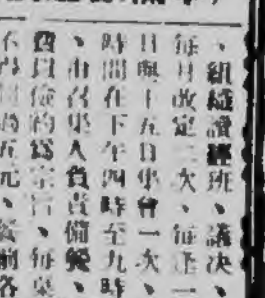 、組織讀經班、議决、
每月改定二次、每逢一
日與十五日集會一次、
時間在下午四時至九時、
、由召集人負責備餐、
費以儉約爲宗旨、每桌
不得過五元、